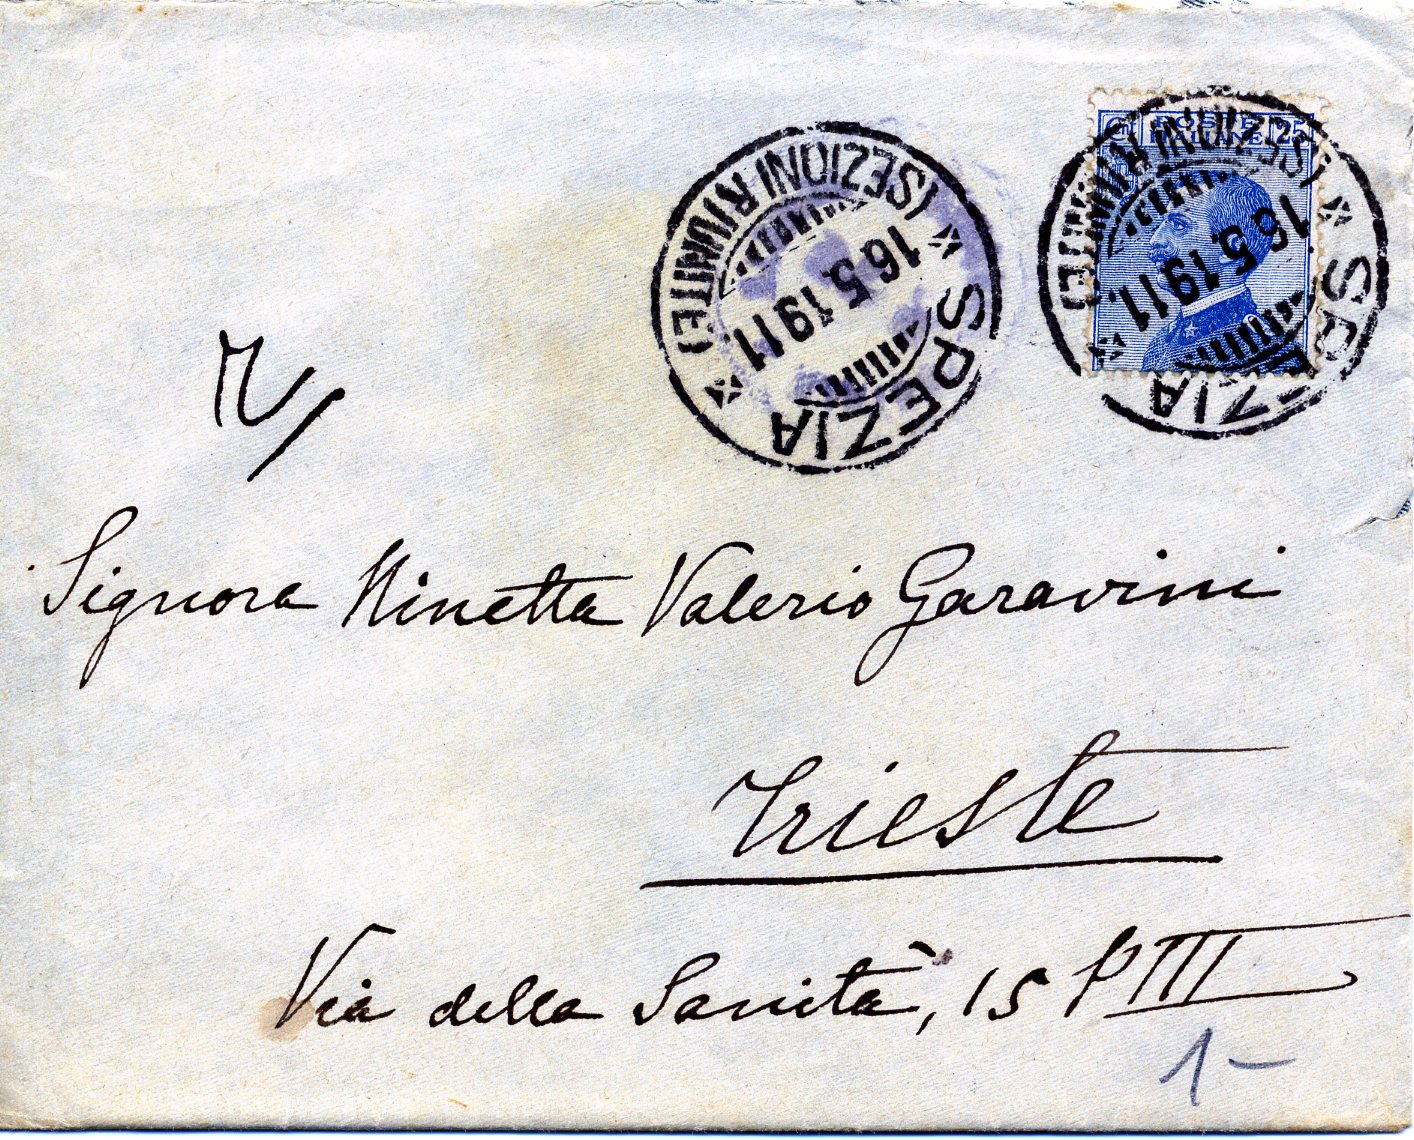 C. POSTE ITALIANE 25
SPEZIA
(SEZIONI RIUNITE)
16.5.1911.
SPEZIA
(SEZIONI RIUNITE)
16.5.1911.
Signora Ninetta Valerio Garavini
Trieste
Via della Sanità, 15 P III
1-